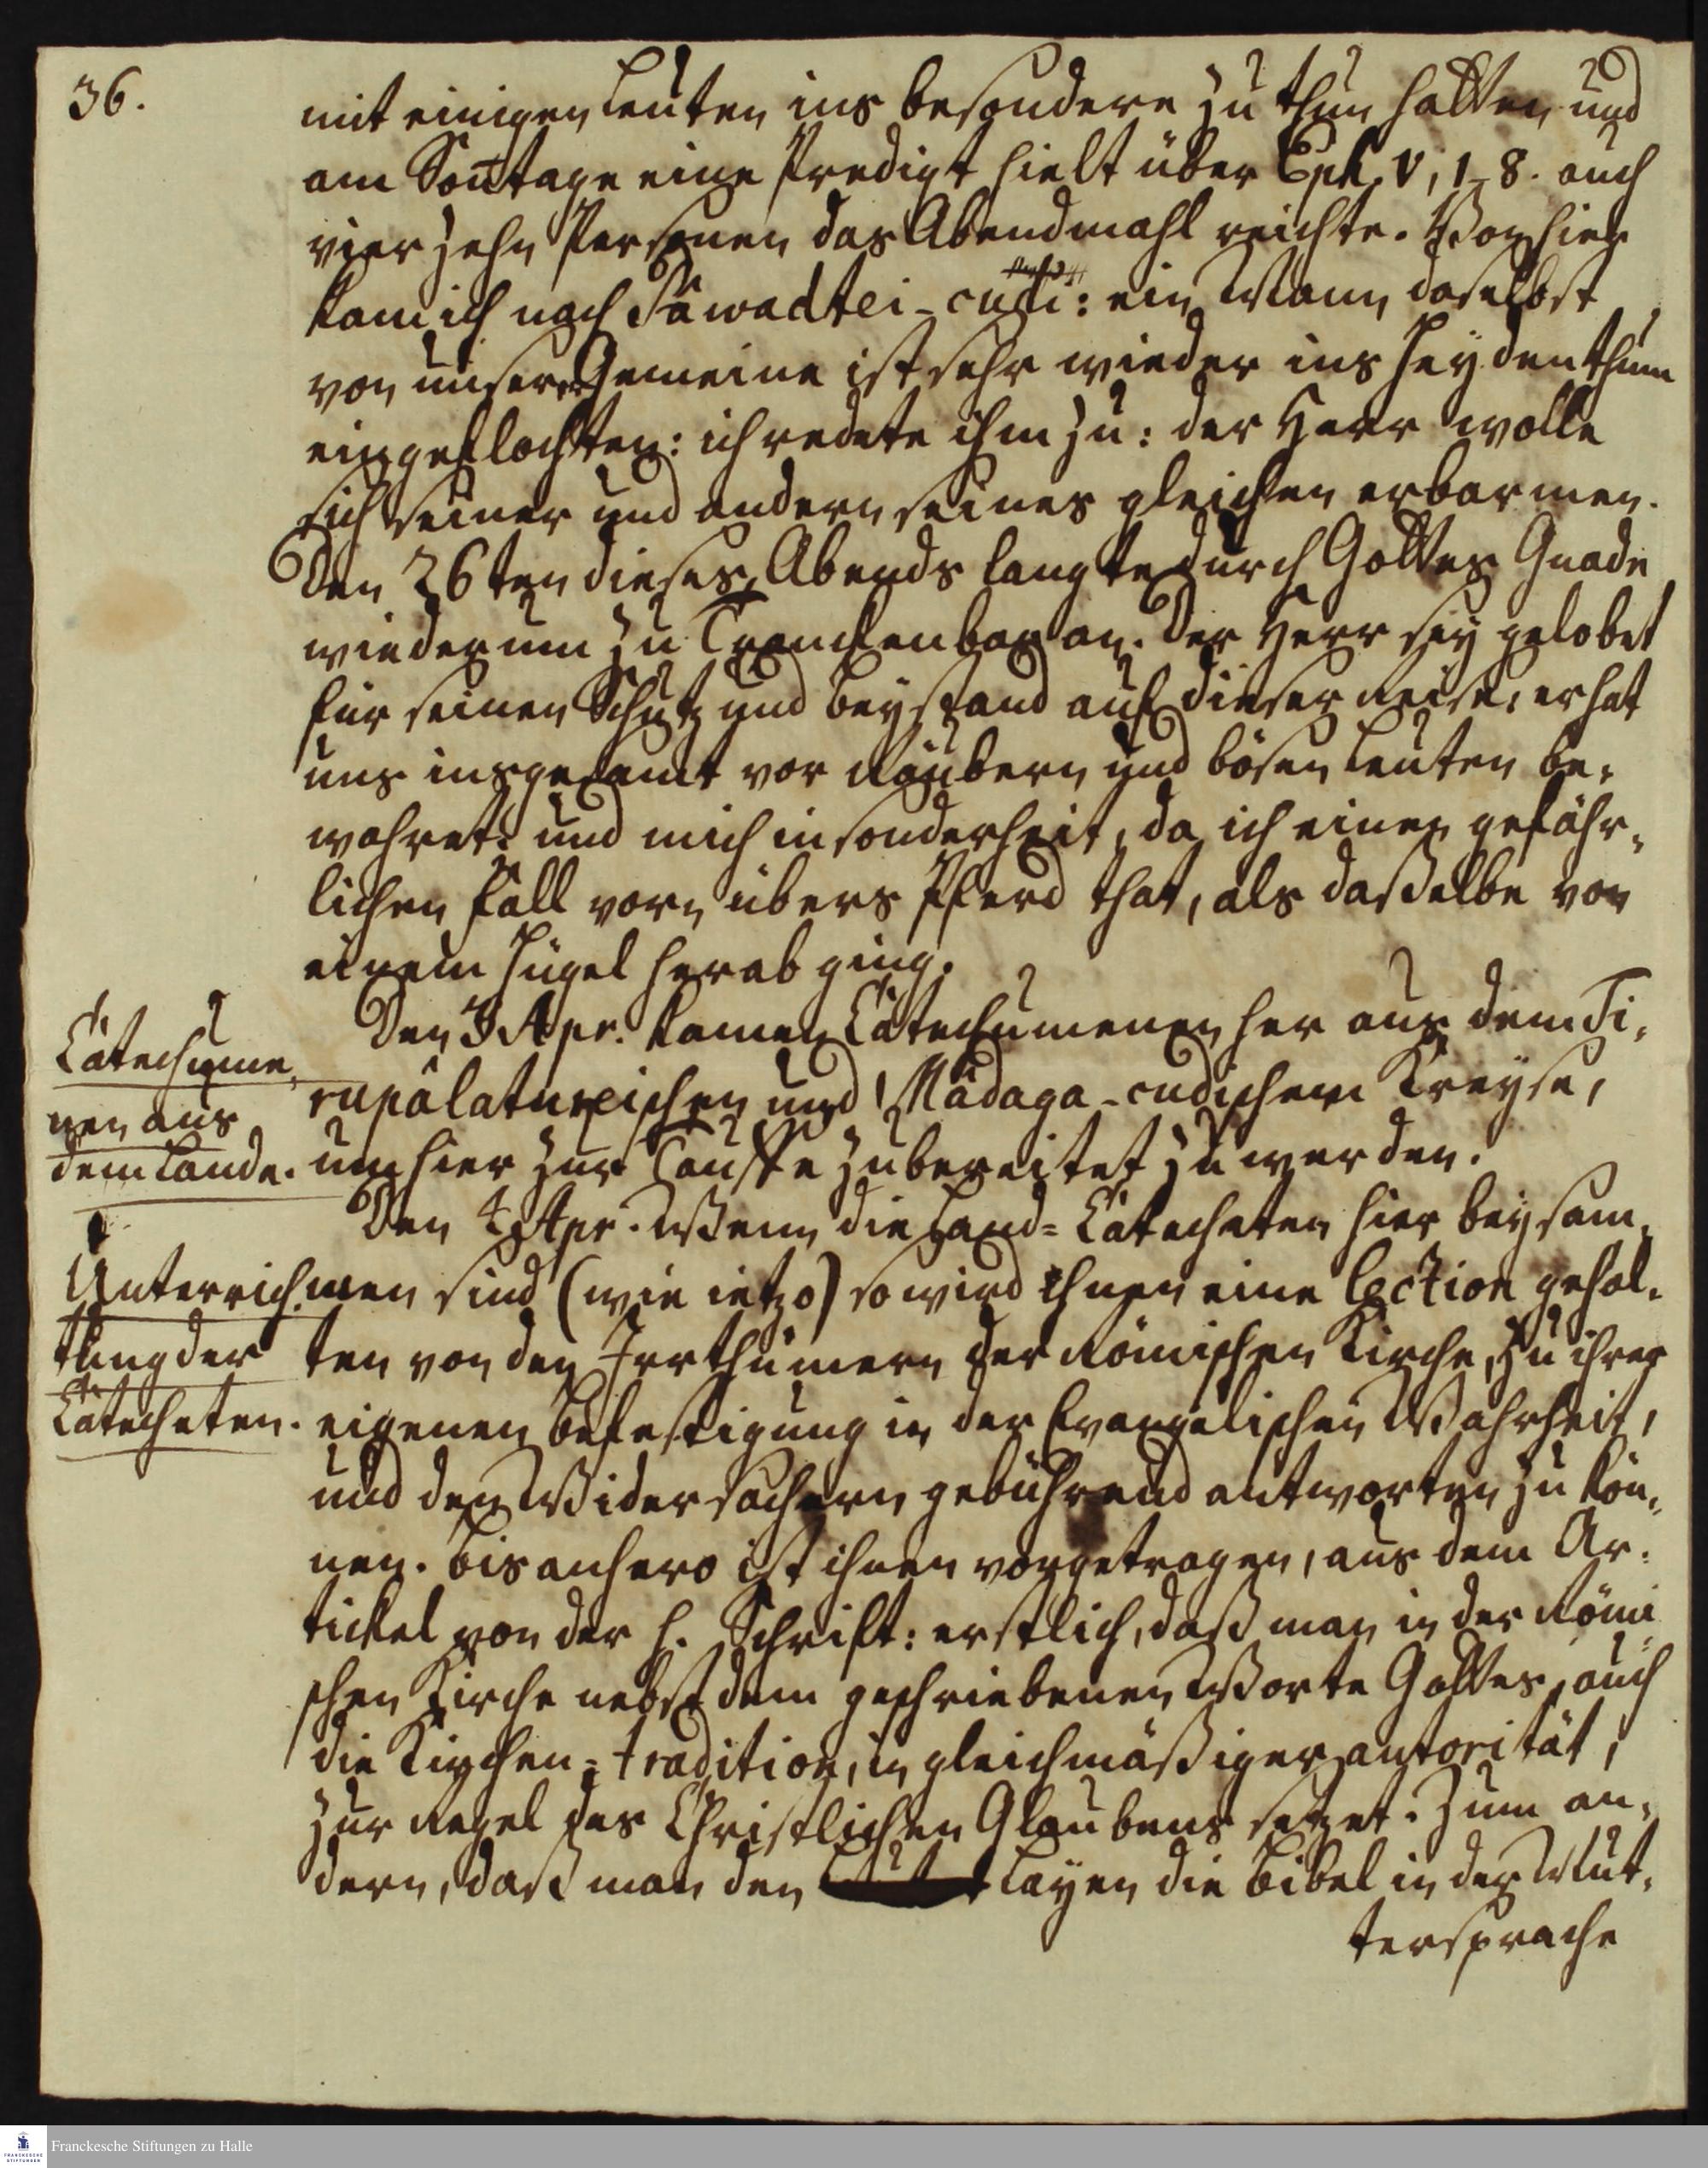 36.
mit einigen Leuten ins besondere zu thun hatten und
am Sontage eine Predigt hielt über Eph. V, 1-8. auch
vierzehn Personen das Abendmahl reichte. Von hier
kam ich nach Päwadtei-cudi: ein Mann daselbst
von unserer Gemeine ist sehr wieder ins Heydenthum
eingeflochten: ich redete ihm zu: der Herr wolle
sich seiner und andern seines gleichen erbarmen.
Den 26ten dieses Abends langte durch Gottes Gnade
wiederum zu Tranckenbar an. Der Herr sey gelobet
für seinen Schutz und Beystand auf dieser Reise, er hat
uns insgesamt vor Räubern und bösen Leuten be-
wahret: und mich insonderheit, da ich einen gefähr-
lichen Fall vorn übers Pferd that, als daßelbe von
einem Hügel herab ging.
Catechume-
nen aus
dem Lande.
Den 3 Apr. kamen Catechumenen her aus dem Ti-
rupâlatureischen und Mâdaga-cudischem Creyse,
um hier zur Tauffe zubereitet zu werden.
Unterrich-
tung der
Catecheten.
Den 4 Apr. Wenn die Land-Catecheten hier beysam-
men sind (wie ietzo) so wird ihnen eine lection gehal-
ten von den Irrthümern der Römischen Kirche, zu ihrer
eigenen Befestigung in der Evangelischen Wahrheit,
und den Widersachern gebührend antworten zu kön-
nen. Bis anhero ist ihnen vorgetragen, aus dem Ar-
tickel von der H. Schrift: erstlich, daß man in der Römi-
schen Kirche nebst dem geschriebenen Worte Gottes, auch
die Kirchen-tradition, in gleichmäßiger autorität,
zur Regel des Christlichen Glaubens setzet. Zum an-
dern, daß man den Layen die Bibel in der Mut-
tersprache
Franckesche Stiftungen zu Halle